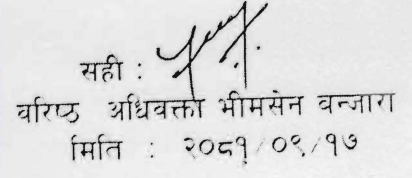 सही :
वरिष्ठ अधिवक्ता भीमसेन वन्जारा
मिति : २०८१/०९/१७